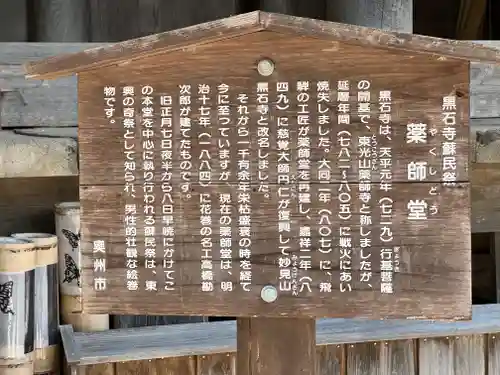 黒石寺蘇民祭
薬師堂
やくしどう
黒石寺は、天平元年（七二九）行基菩薩
ぎょうき
の開基で、東光山薬師寺と称しましたが、
とうこうざん
延暦年間（七八二～八〇五）に戦火にあい
焼失しました。大同二年（八〇七）に、飛
騨の工匠が薬師堂を再建し、嘉祥二年（八
四九）に慈覚大師円仁が復興して妙見山
黒石寺と改名しました。
それから一千有余年栄枯盛衰の時を経て
今に至っていますが、現在の薬師堂は、明
治十七年（一八八四）に花巻の名工高橋勘
次郎が建てたものです。
旧正月七日夜半から八日早暁にかけてこ
の本堂を中心に執り行われる蘇民祭は、東
奥の奇祭として知られ、男性的壮観な絵巻
物です。
奥州市